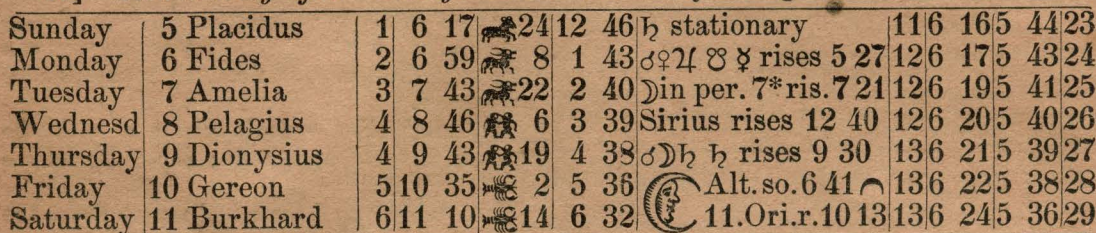 Sunday 5 Placidus 1 6 17 24 12 46 ♄ stationary 11 6 16 5 44 23
Monday 6 Fides 2 6 59 8 1 43 ☌♀♃ ☋ ☿ rises 5 27 12 6 17 5 43 24
Tuesday 7 Amelia 3 7 43 22 2 40 ☽in per. 7*ris.7 21 12 6 19 5 41 25
Wednesd 8 Pelagius 4 8 46 6 3 39 Sirius rises 12 40 12 6 20 5 40 26
Thursday 9 Dionysius 4 9 43 19 4 38 ☌☽♄ ♄ rises 9 30 13 6 21 5 39 27
Friday 10 Gereon 5 10 35 2 5 36 Alt.so.6 41 13 6 22 5 38 28
Saturday 11 Burkhard 6 11 10 14 6 32 11.Ori.r.10 13 13 6 24 5 36 29